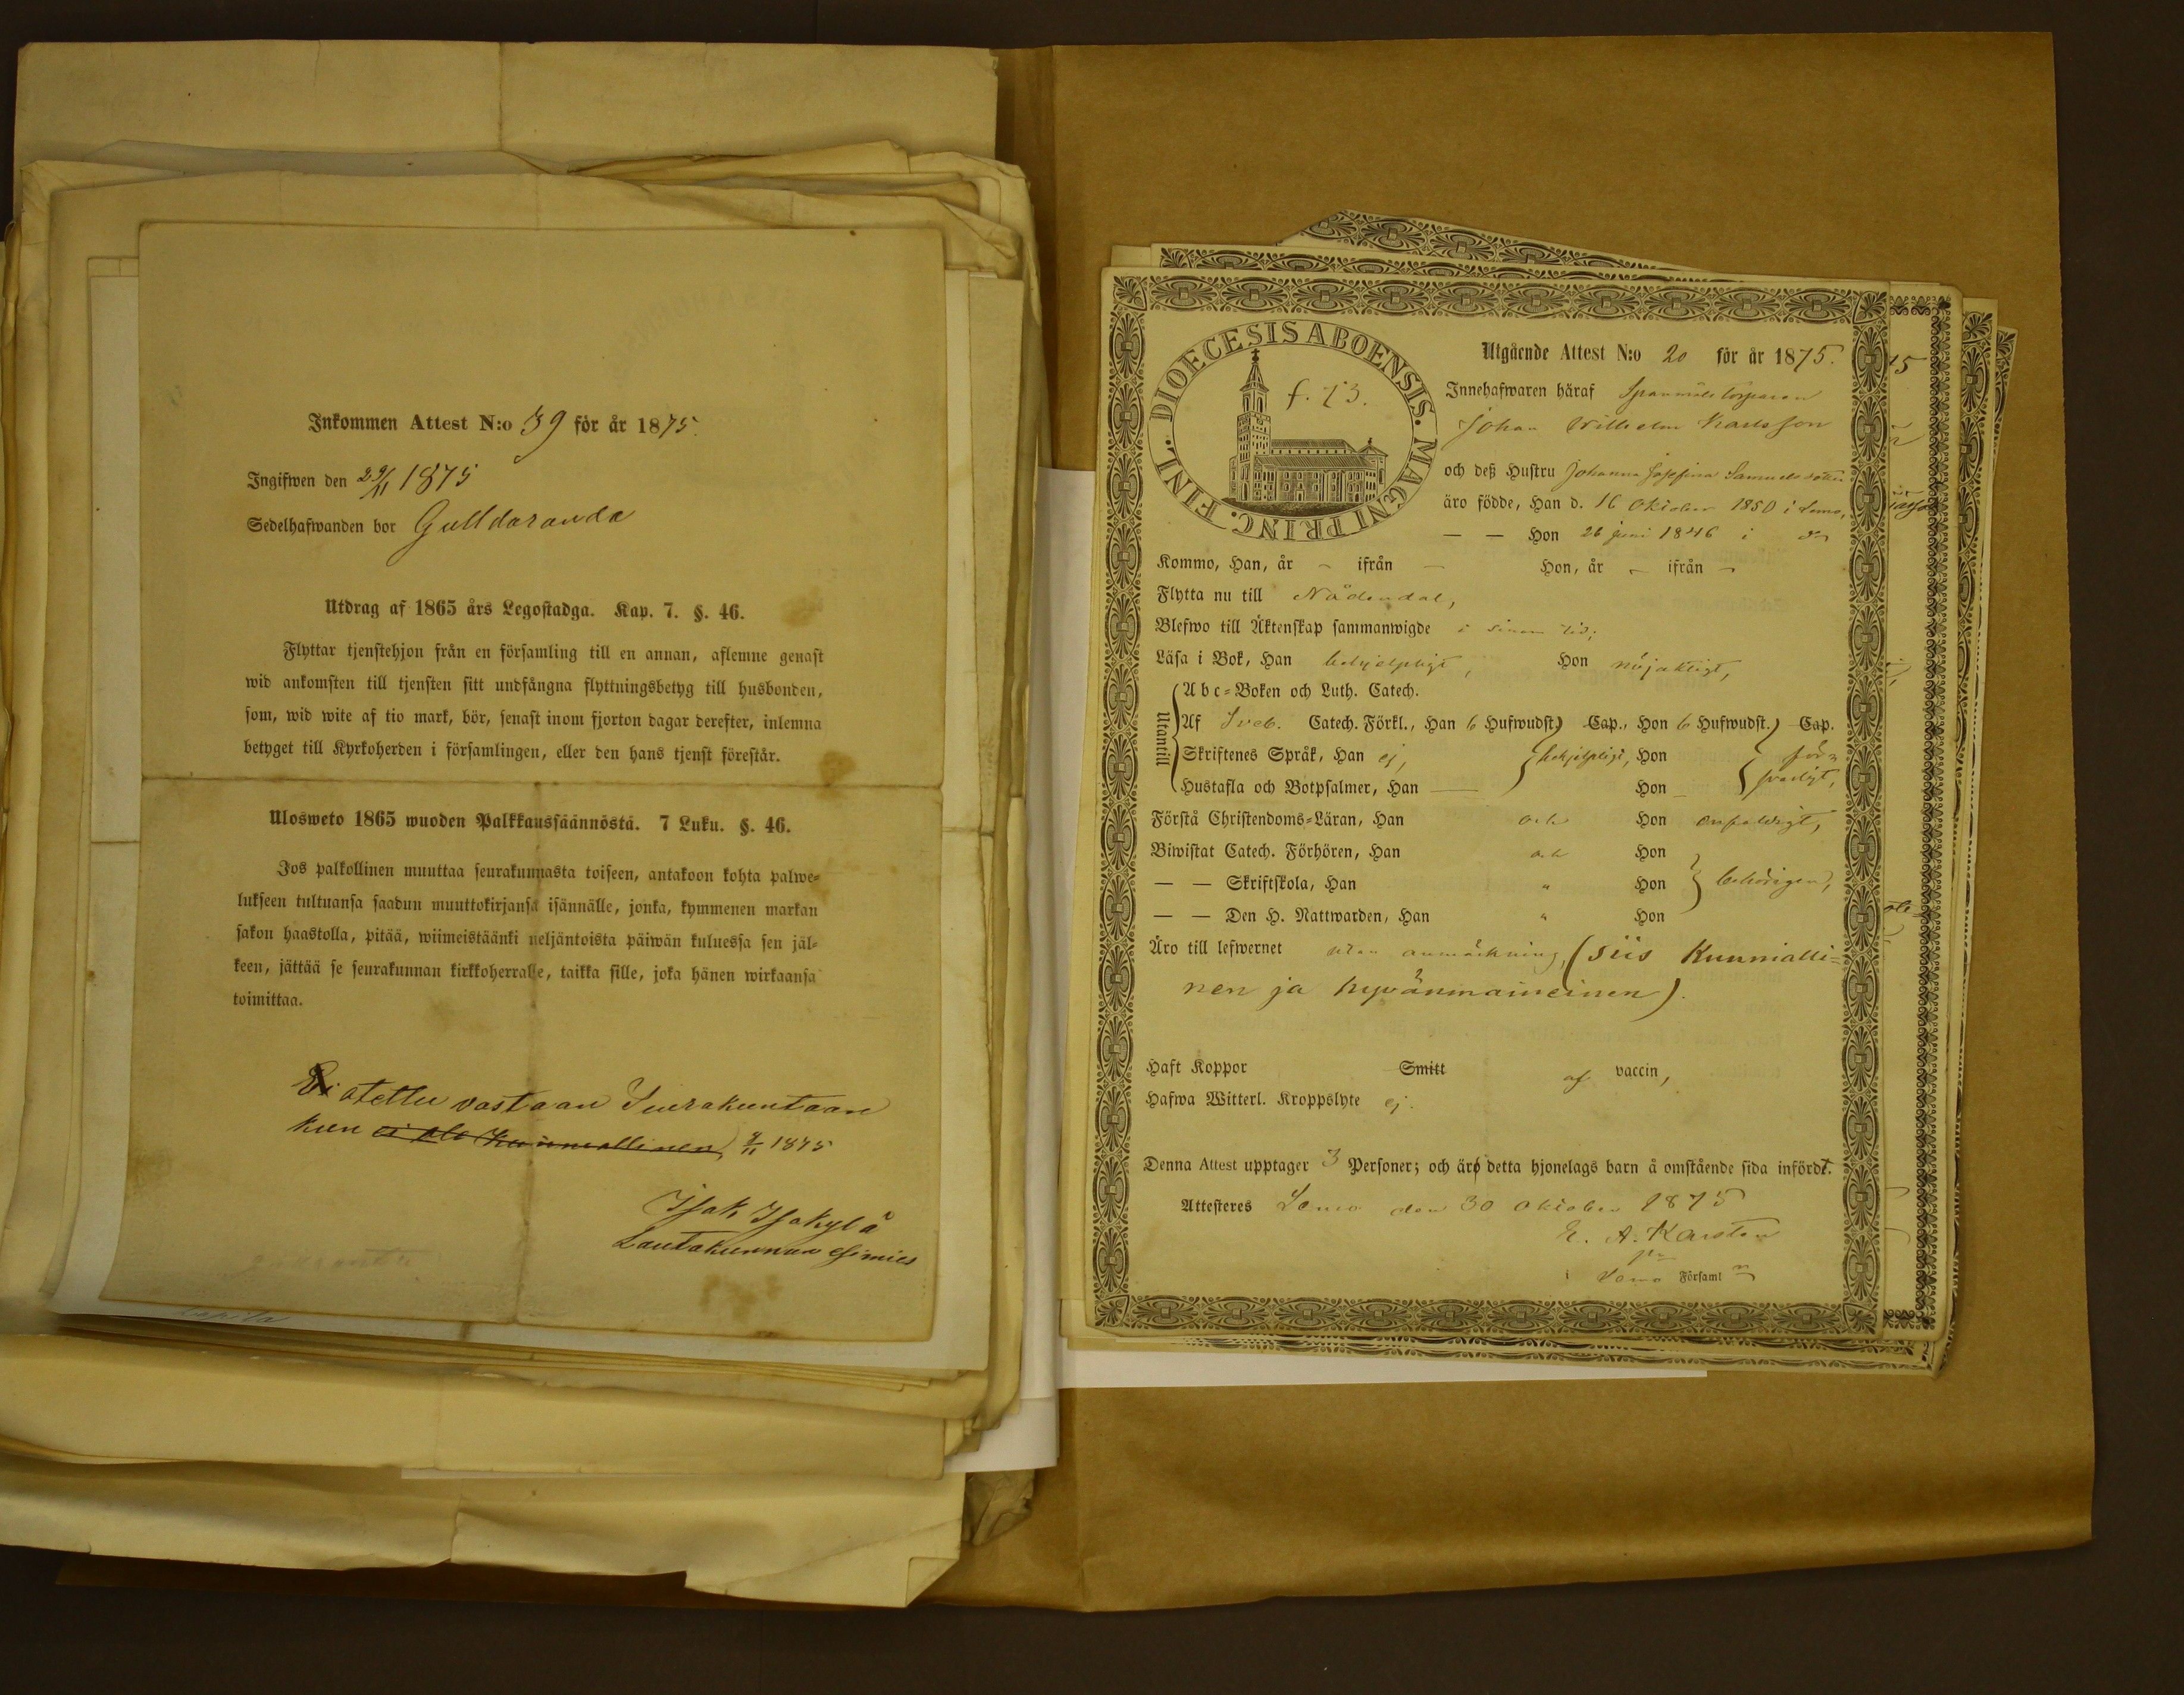 Inkommen Attest N:o 39 för år 1875.
Ingifwen den 29/11 1875
Sedelhafwanden bor Gulldaranda
Utdrag af 1865 års Legostadga. Kap. 7. §. 46.
Flyttar tjenstehjon från en församling till en annan, aflemne genast
wid ankomsten till tjensten sitt undfångna flyttningsbetyg till husbonden,
som, wid wite af tio mark, bör, senast inom fjorton dagar derefter, inlemna
betyget till Kyrkoherden i församlingen, eller den hans tjenst förestår.
Ulosweto 1865 wuoden Palkkaussäännöstä. 7 Luku. §. 46.
Jos palkollinen muuttaa seurakunnasta toiseen, antakoon kohta palwe=
lukseen tultuansa saadun muuttokirjansa isännälle, jonka, kymmenen markan
sakon haastolla, pitää, wiimeistäänki neljäntoista päiwän kuluessa sen jäl=
keen, jättää se seurakunnan kirkkoherralle, taikka sille, joka hänen wirkaansa
toimittaa.
Ei otettu vastaan Seurakuntaan
kun ei ole kunniallinen, 1875
Isak Isokylä
Lautakunnan Esimies
DIOECESIS ABOENSIS. MAGNI PRINC. FINL.
f. 73.
Utgående Attest N:o 20 för år 1875.
Innehafwaren häraf Spannmåls torparen
Johan Wilhelm Karlsson
och deß Hustru Johanna Josefina Samuelsdotter
äro födde, Han d. 16 Oktober 1850 i Lemo,
— — Hon 26 juni 1846 i
Kommo, Han, år - ifrån — Hon, år - ifrån -
Flytta nu till Nådendal,
Blefwo till Äktenskap sammanwigde i sinom tid;
Läsa i Bok, Han behjelpligt, Hon nöjaktigt,
Utantill
Abc=Boken och Luth. Catech.
Af Sveb. Catech. Förkl., Han 6 Hufwudst) Cap., Hon 6 Hufwudst.) Cap.
Skriftenes Språk, Han ej, behjelpligt, Hon för=
Hustafla och Botpsalmer, Han — Hon — svarligt,
Förstå Christendoms=Läran, Han och Hon enfaldigt,
Biwistat Catech. Förhören, Han och Hon
— — Skriftskola, Han " Hon behörigen,
— — Den H. Nattwarden, Han " Hon
Äro till lefwernet utan anmärkning, (siis Kunnialli=
nen ja hyvänmaineinen).
Haft Koppor Smitt af vaccin,
Hafwa Witterl. Kroppslyte ej.
Denna Attest upptager 3 Personer; och äro detta hjonelags barn å omstående sida infördt.
Attesteres Lemo den 30 Oktober 1875
E. A. Karsten
i Lemo Församl